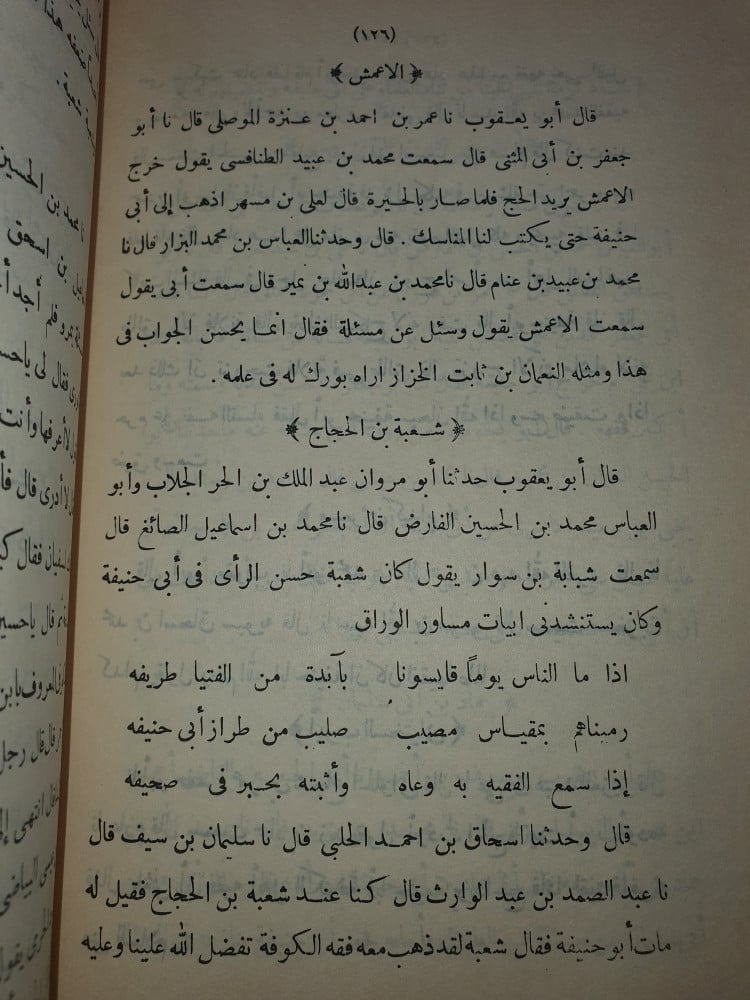 (١٢٦)
﴿ الاعمش ﴾
قال أبو يعقوب نا عمر بن احمد بن عنزة الموصلى قال نا أبو
جعفر بن أبى المثنى قال سمعت محمد بن عبيد الطنافسى يقول خرج
الاعمش يريد الحج فلما صار بالحيرة قال لعلى بن مسهر اذهب إلى أبى
حنيفة حتى يكتب لنا المناسك . قال وحدثنا العباس بن محمد البزار قال نا
محمد بن عبيد بن عنام قال نا محمد بن عبدالله بن نمير قال سمعت أبى يقول
سمعت الاعمش يقول وسئل عن مسئلة فقال انما يحسن الجواب فى
هذا ومثله النعمان بن ثابت الخزاز اراه بورك له فى علمه .
﴿ شعبة بن الحجاج ﴾
قال أبو يعقوب حدثنا أبو مروان عبد الملك بن الحر الجلاب وأبو
العباس محمد بن الحسين الفارض قال نا محمد بن اسماعيل الصائغ قال
سمعت شبابة بن سوار يقول كان شعبة حسن الرأى فى أبى حنيفة
وكان يستنشدنى ابيات مساور الوراق
اذا ما الناس يوماً قايسونا بآبدة من الفتيا طريفه
رميناهم بمقياس مصيب صليب من طراز أبى حنيفه
إذا سمع الفقيه به وعاه وأثبته بحبر فى صحيفه
قال وحدثنا اسحاق بن احمد الحلبى قال نا سليمان بن سيف قال
نا عبد الصمد بن عبد الوارث قال كنا عند شعبة بن الحجاج فقيل له
مات أبو حنيفة فقال شعبة لقد ذهب معه فقه الكوفة تفضل الله علينا وعليه